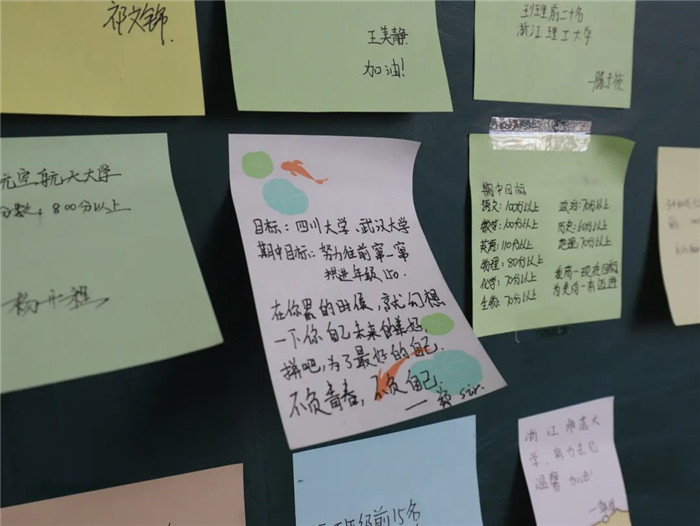 祁文锦
王美静
加油!
班里前二十名
浙江理工大学
航天大学
800分以上
目标:四川大学、武汉大学
期中目标:努力往前窜一窜
拼进年级150.
在你累的时候,就幻想
一下你自己未来的美好.
拼吧,为了最好的自己.
不负青春,不负自己.
sir.
期中目标
语文:100分以上
数学:100分以上
英语:110分以上
物理:80分以上
化学:70分以上
生物:70分以上
政治:70分以上
历史:60分以上
地理:70分以上
为更好
前15名
浙江师范大
学,努力去吧
温馨 加油!